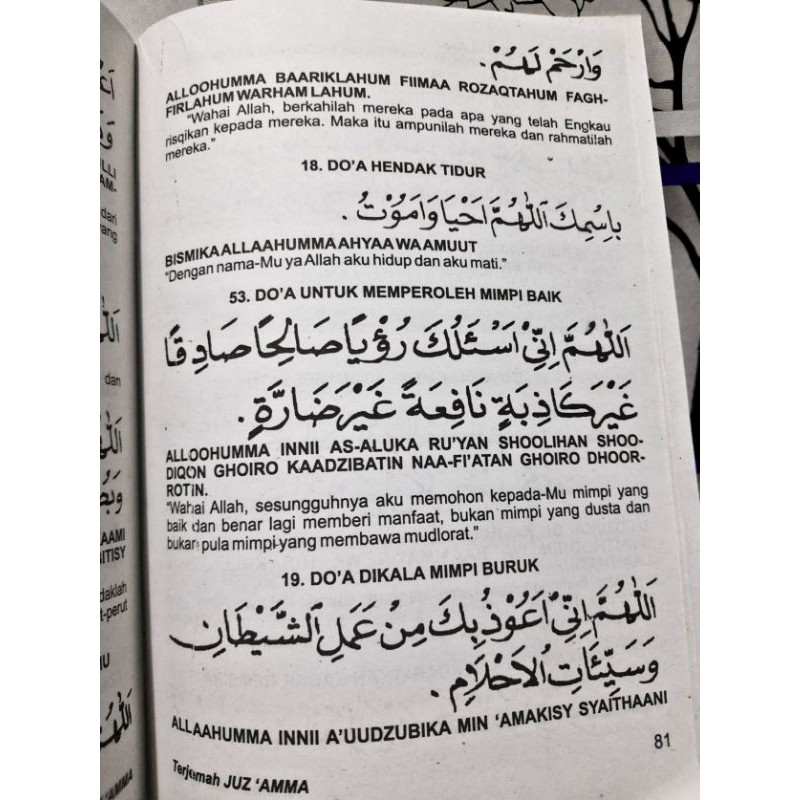 وَارْحَمْ لَهُمْ.
ALLOOHUMMA BAARIKLAHUM FIIMAA ROZAQTAHUM FAGH-
FIRLAHUM WARHAM LAHUM.
"Wahai Allah, berkahilah mereka pada apa yang telah Engkau
risqikan kepada mereka. Maka itu ampunilah mereka dan rahmatilah
mereka."
18. DO'A HENDAK TIDUR
بِاسْمِكَ اَللّٰهُمَّ اَحْيَا وَاَمُوْتُ.
BISMIKA ALLAAHUMMA AHYAA WA AMUUT
"Dengan nama-Mu ya Allah aku hidup dan aku mati."
53. DO'A UNTUK MEMPEROLEH MIMPI BAIK
اَللّٰهُمَّ اِنِّيْ اَسْئَلُكَ رُؤْيًا صَالِحًا صَادِقًا
غَيْرَ كَاذِبَةٍ نَافِعَةً غَيْرَ ضَارَّةٍ.
ALLOOHUMMA INNII AS-ALUKA RU'YAN SHOOLIHAN SHOO-
DIQON GHOIRO KAADZIBATIN NAA-FI'ATAN GHOIRO DHOOR-
ROTIN.
"Wahai Allah, sesungguhnya aku memohon kepada-Mu mimpi yang
baik dan benar lagi memberi manfaat, bukan mimpi yang dusta dan
bukan pula mimpi yang membawa mudlorat."
19. DO'A DIKALA MIMPI BURUK
اَللّٰهُمَّ اِنِّيْ اَعُوْذُ بِكَ مِنْ عَمَلِ الشَّيْطَانِ
وَسَيِّئَاتِ الْاَحْلَامِ.
ALLAAHUMMA INNII A'UUDZUBIKA MIN 'AMAKISY SYAITHAANI
Terjemah JUZ 'AMMA
81